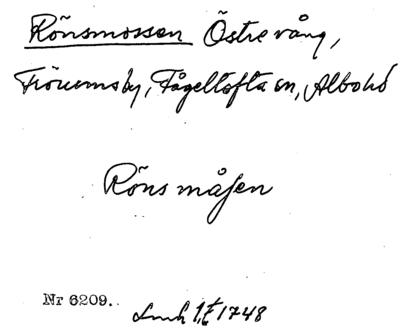 Rönsmossen Östre vång,
Fröuernsby, Fågeltofta sn, Albo hd
Röns måßen
Nr 6209.
Lmk 1748